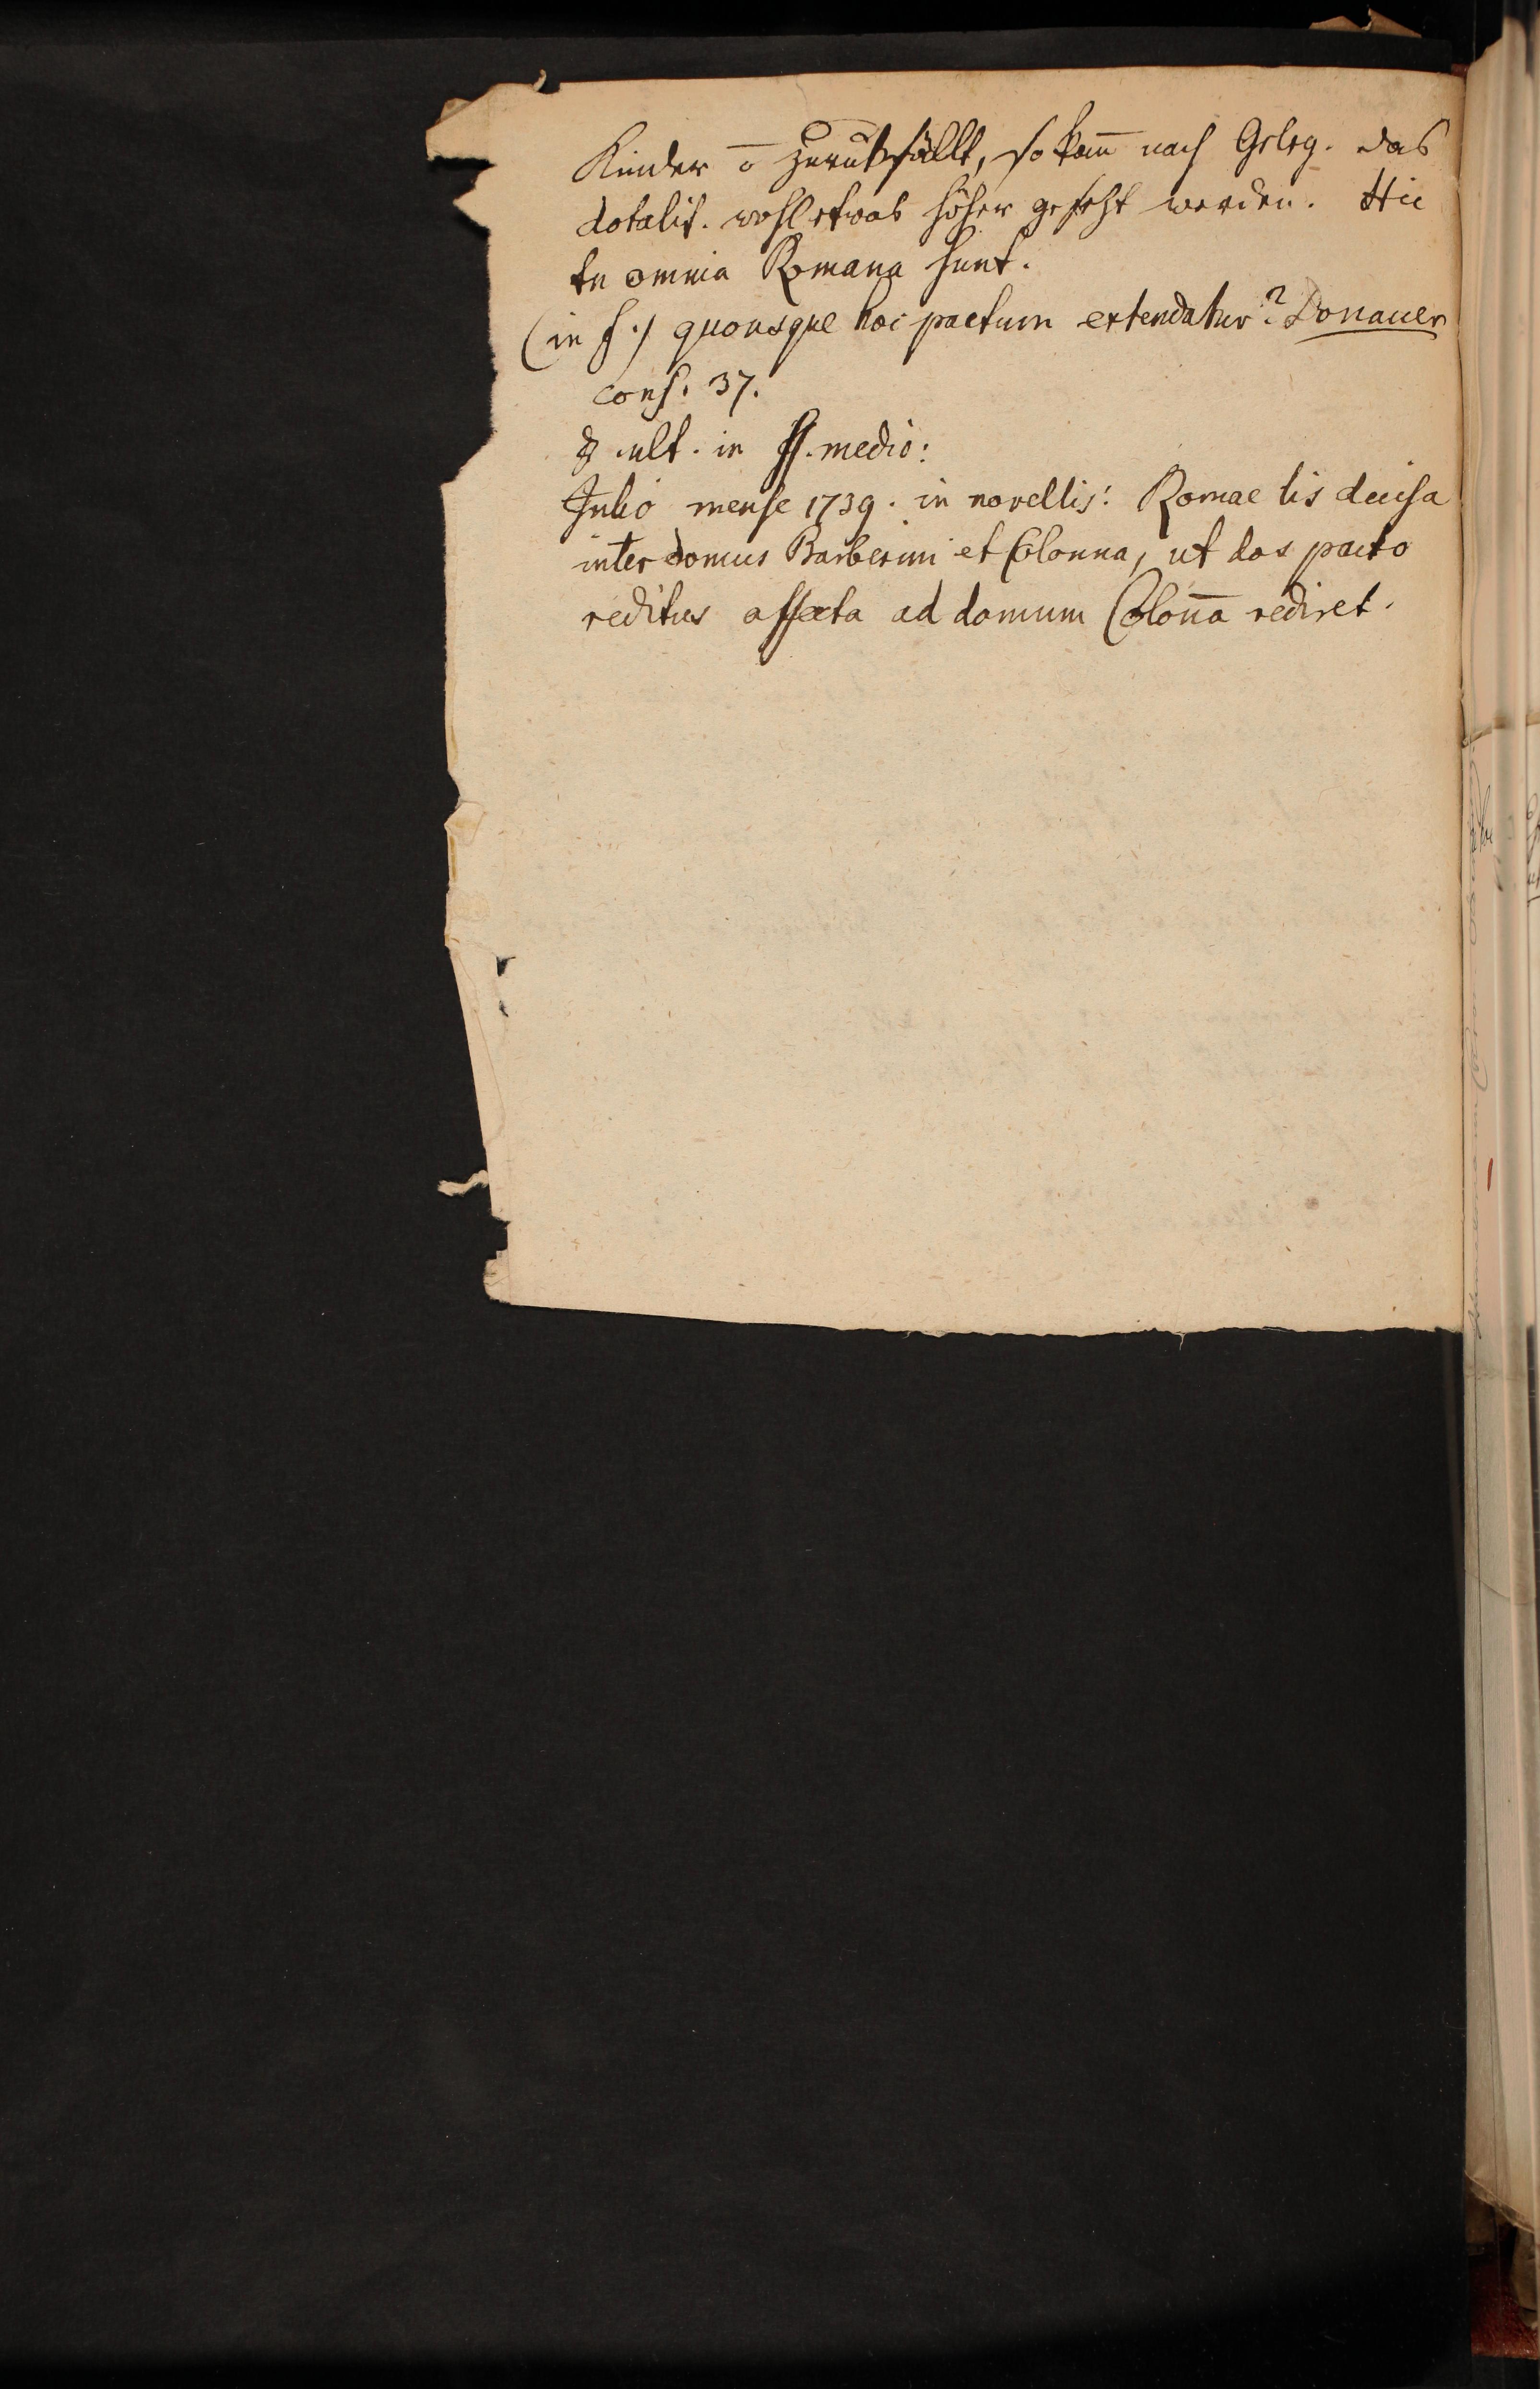 Kinder ō zurükfällt, so kan̄ nach Geleg. das
dotalit. wohl etwas höher gesezt werden. Hic
tn omnia Romana sunt.
(in f.) quousque hoc pactum extendatur? Donauer
cons. 37.
§ .ult. in ff. medio:
Julio mense 1739. in novellis: Romae lis decisa
inter domus Barberini et Colonna, ut dos pacto
reditus affecta ad domum Colon̄a rediret.